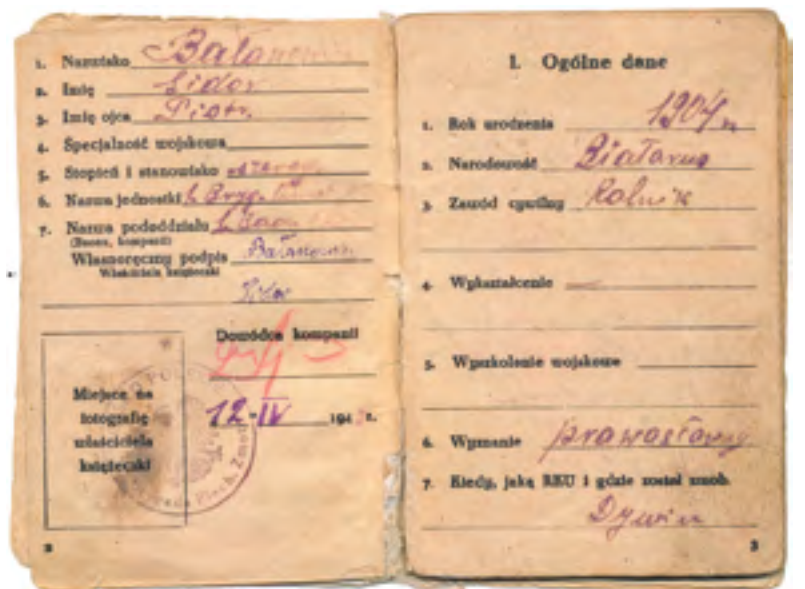 1. Nazwisko
2. Imię Sidor
3. Imię ojca Piotr
4. Specjalność wojskowa
5. Stopień i stanowisko
6. Nazwa jednostki
7. Nazwa pododdziału
(Baonu, kompanii)
Własnoręczny podpis
Właściciela książeczki
Sidor
Dowódca kompanii
12-IV 194 r.
Miejsce na
fotografię
właściciela
książeczki
2
I. Ogólne dane
1. Rok urodzenia 1904
2. Narodowość Białorus
3. Zawód cywilny Rolnik
4. Wykształcenie —
5. Wyszkolenie wojskowe
6. Wyznanie prawosławny
7. Kiedy, jaką RKU i gdzie został zmob.
Dywin
3